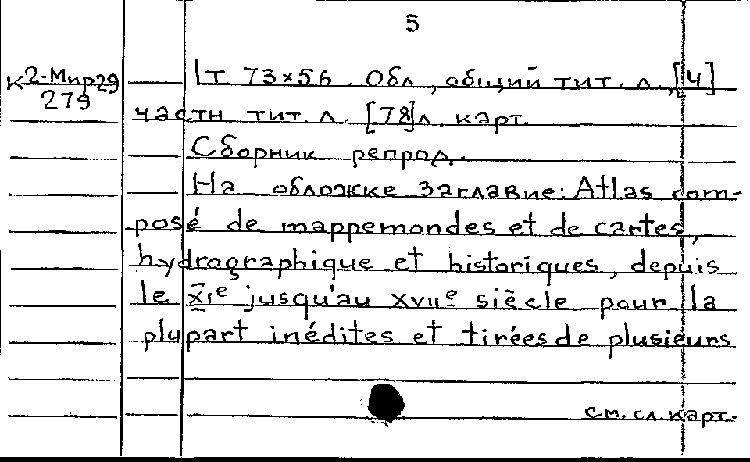 5
К2-Мир29
279
1т 73×56 Обл, общий тит. л, [4]
частн тит. л. [78]л. карт.
Сборник репрод.
На обложке заглавие: Atlas com-
posé de mappemondes et de cartes,
hydrographique et historiques, depuis
le XIe jusqu'au XVIIe siècle pour la
plupart inédites et tirées de plusieurs
см. сл. карт.